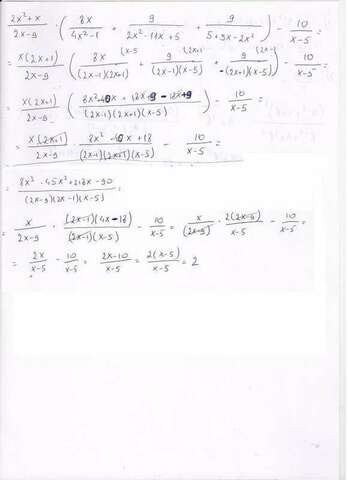 (2x²+x)/(2x-9) · (8x/(4x²-1) + 9/(2x²-11x+5) + 9/(5+9x-2x²)) - 10/(x-5) =
= x(2x+1)/(2x-9) · (8x (x-5/((2x-1)(2x+1)) + 9 (2x+1/((2x-1)(x-5)) + 9 (2x-1/(-(2x+1)(x-5))) - 10/(x-5) =
= x(2x+1)/(2x-9) · ((8x²-40x + 18x+9 - 18x+9)/((2x-1)(2x+1)(x-5))) - 10/(x-5) =
= x(2x+1)/(2x-9) · (8x²-40x+18)/((2x-1)(2x+1)(x-5)) - 10/(x-5) =
= (8x³ · 45x²+218x-90)/((2x-9)(2x-1)(x-5)) =
= x/(2x-9) · (2x-1)(4x-18)/((2x-1)(x-5)) - 10/(x-5) = x/(2x-9) · 2(2x-9)/(x-5) - 10/(x-5) =
= 2x/(x-5) - 10/(x-5) = (2x-10)/(x-5) = 2(x-5)/(x-5) = 2